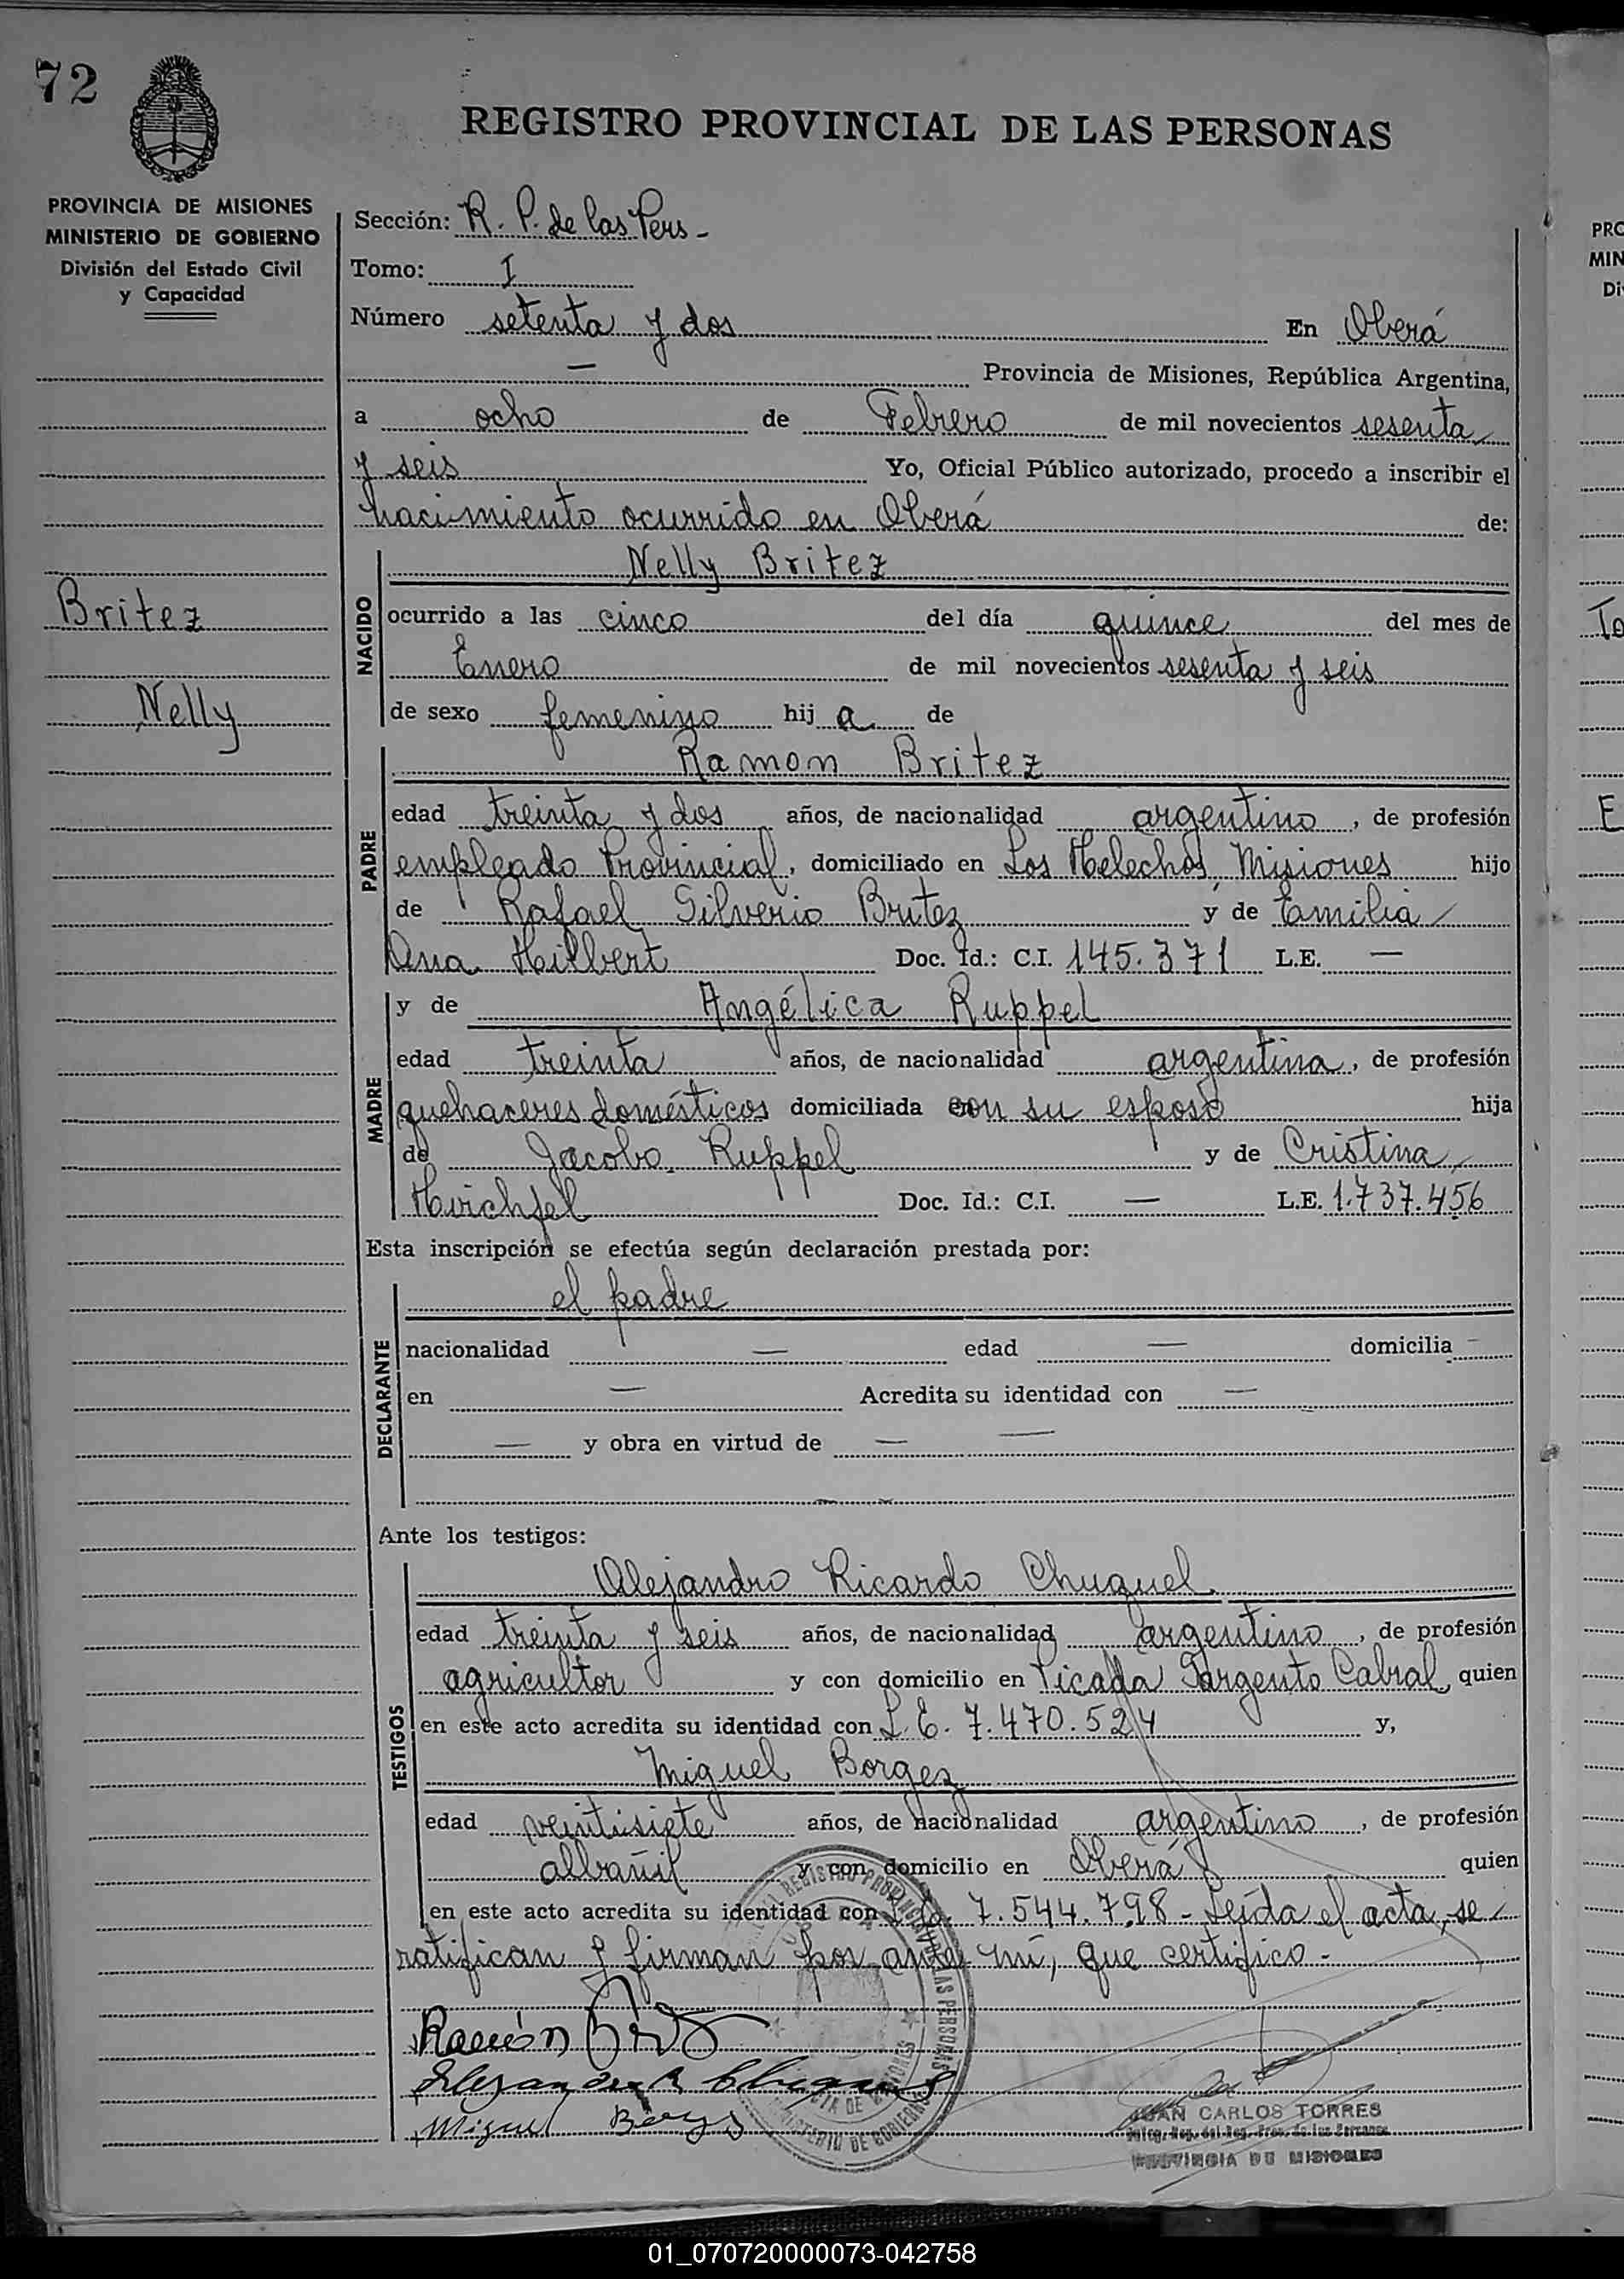 72
REGISTRO PROVINCIAL DE LAS PERSONAS
PROVINCIA DE MISIONES
MINISTERIO DE GOBIERNO
División del Estado Civil
y Capacidad
Sección: R. P. de las Pers -
Tomo: I
Número setenta y dos En Oberá
— Provincia de Misiones, República Argentina,
a ocho de Febrero de mil novecientos sesenta
y seis Yo, Oficial Público autorizado, procedo a inscribir el
nacimiento ocurrido en Oberá de:
Britez
Nelly
NACIDO
Nelly Britez
ocurrido a las cinco del día quince del mes de
Enero de mil novecientos sesenta y seis
de sexo femenino hij a de
PADRE
Ramon Britez
edad treinta y dos años, de nacionalidad argentino, de profesión
empleado Provincial, domiciliado en Los Helechos, Misiones hijo
de Rafael Silverio Britez y de Emilia
Ana Hilbert Doc. Id.: C.I. 145.371 L.E. —
MADRE
y de Angélica Ruppel
edad treinta años, de nacionalidad argentina, de profesión
quehaceres domésticos domiciliada con su esposo hija
de Jacobo Ruppel y de Cristina
Doc. Id.: C.I. — L.E. 1.737.456
Esta inscripción se efectúa según declaración prestada por:
DECLARANTE
el padre
nacionalidad — edad — domicilia —
en — Acredita su identidad con —
— y obra en virtud de — —
Ante los testigos:
TESTIGOS
Alejandro Ricardo Chuquel
edad treinta y seis años, de nacionalidad argentino, de profesión
agricultor y con domicilio en Picada Sargento Cabral, quien
en este acto acredita su identidad con L. E. 7.470.524 y,
Miguel Borgez
edad veintisiete años, de nacionalidad argentino, de profesión
albañil y con domicilio en Oberá quien
en este acto acredita su identidad con L. E. 7.544.798 - Leída el acta, se
ratifican y firman por ante mí, que certifico -
Ramón
Miguel
JUAN CARLOS TORRES
PROVINCIA DE MISIONES
01_070720000073-042758